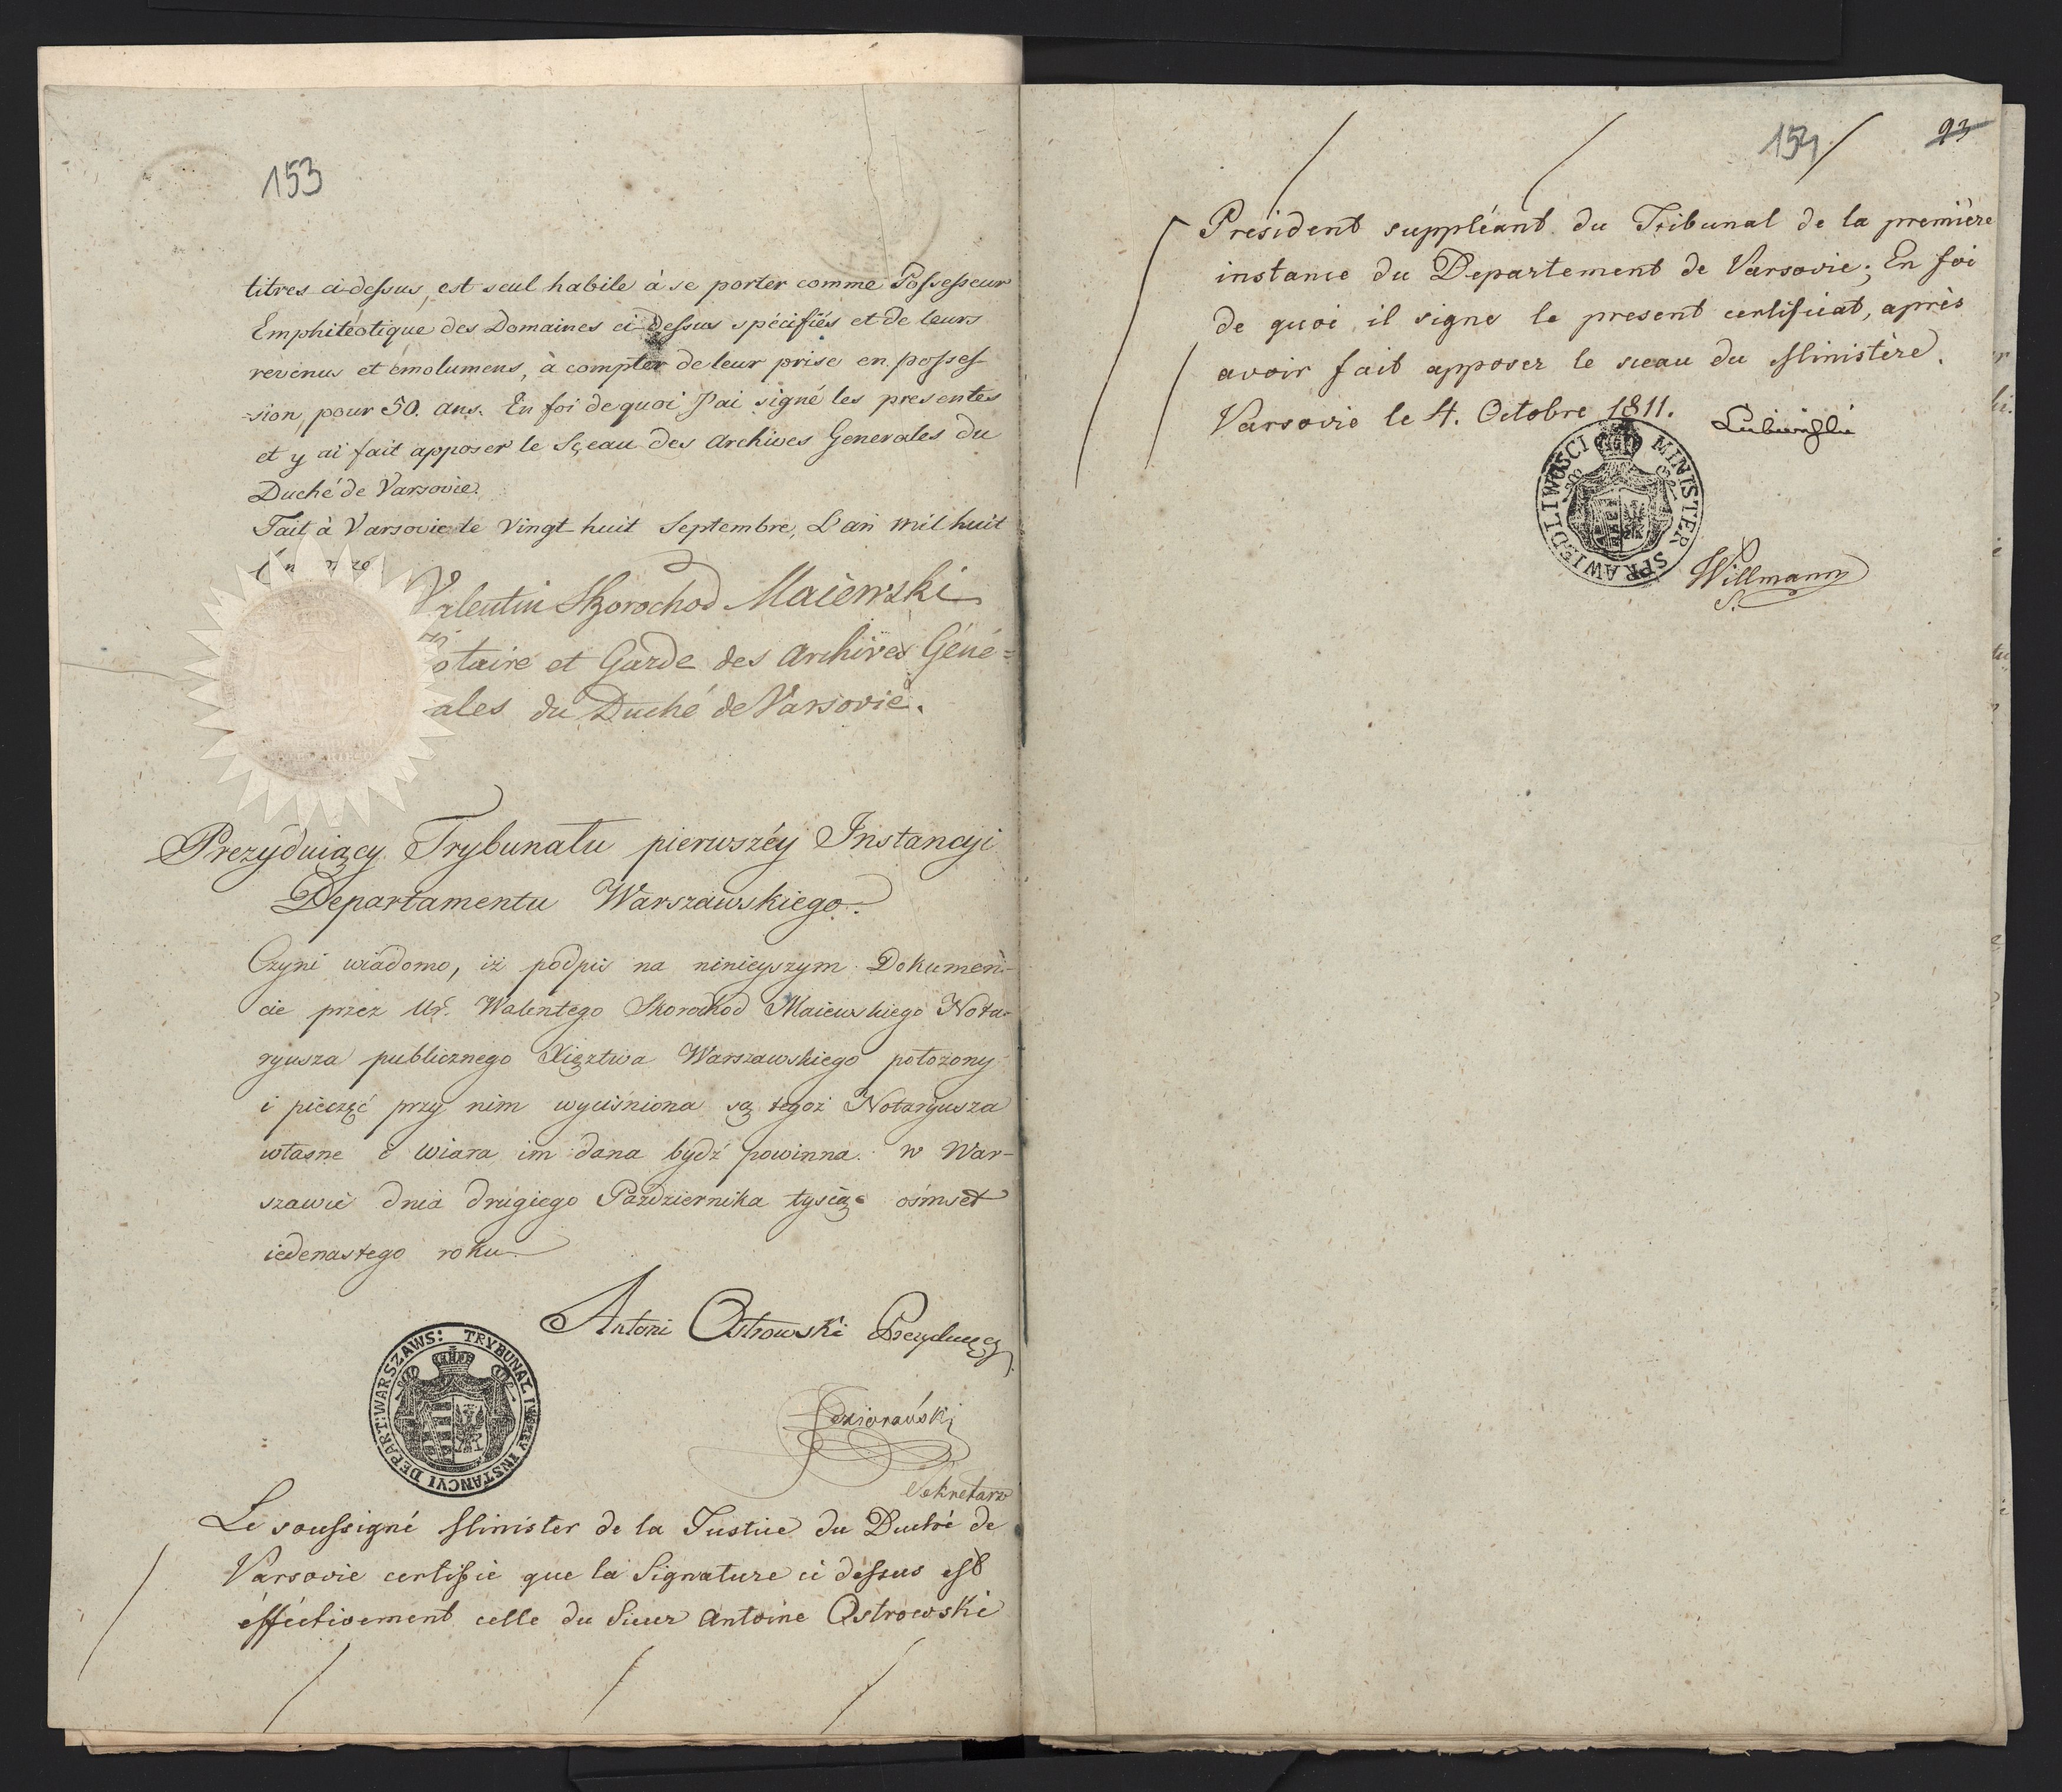 153
titres ci-dessus, est seul habile à se porter comme Possesseur
Emphitéotique des Domaines ci-dessus spécifiés et de leurs
revenus et émolumens, à compter de leur prise en posses
-sion, pour 50. ans. En foi de quoi J'ai signé les presentes
et y ai fait apposer le Sçeau des Archives Generales du
Duché de Varsovie.
Fait à Varsovie le Vingt-huit Septembre, L'an mil huit
Valentin Skorochod Maiewski
Notaire et Garde des Archives Géné=
ales du Duché de Varsovie.
Prezyduiący Trybunału pierwszéy Instancyi
Departamentu Warszawskiego.
Czyni wiadomo, iż podpis na ninieyszym Dokumen-
cie przez Ur. Walentego Skorochod Maiewskiego Nota-
ryusza publicznego Xięztwa Warszawskiego położony
i pieczęć przy nim wyciśniona są tegoż Notaryusza
własne i wiara im dana bydź powinna. w War-
szawie dnia drugiego Pazdziernika tysiąc ośmset
iedenastego roku
Antoni Ostrowski Prezyduiący
TRYBUNAŁ I WSZEY INSTANCYI DEPART: WARSZAWS:
Sekretarz
Le soussigné Minister de la Justice du Duché de
Varsovie certifie que la Signature ci dessus est
éfféctivement celle du Sieur Antoine Ostrowski
154 93
Président suppléant du Tribunal de la première
instance du Departement de Varsovie; En foi
de quoi il signe le present certificat, après
avoir fait apposer le sceau du Ministère.
Varsovie le 4. Octobre 1811.
Lubieński
MINISTER SPRAWIEDLIWOSCI
Willmann
S.